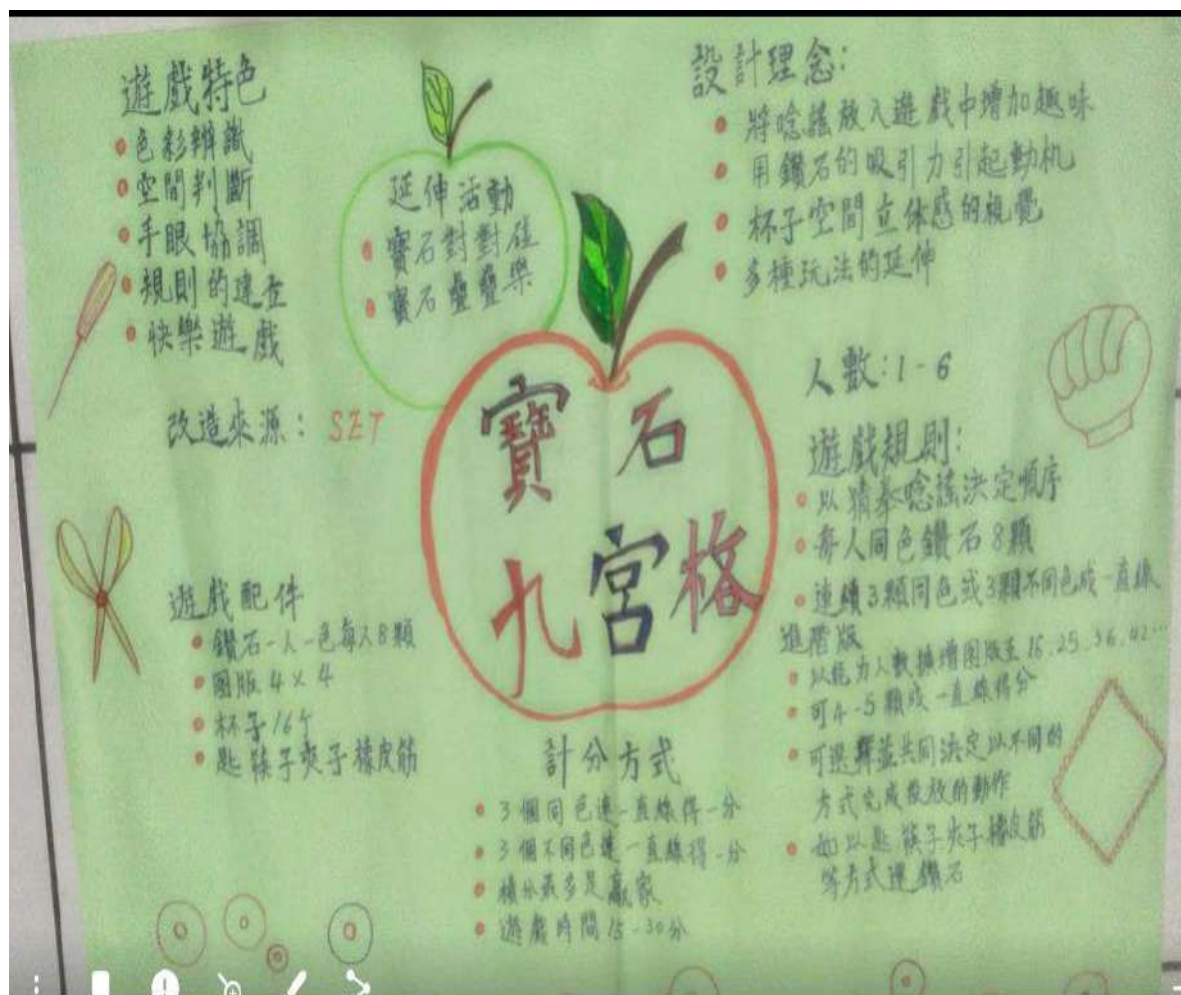 遊戲特色
• 色彩辨識
• 空間判斷
• 手眼協調
• 規則的建立
• 快樂遊戲
改造來源：SET
遊戲配件
• 鑽石-人-色每人8顆
• 图版 4×4
• 杯子16个
• 匙 筷子夾子橡皮筋
延伸活動
• 寶石對對碰
• 寶石疊疊樂
寶石
九宮格
計分方式
• 3個同色連一直線得一分
• 3個不同色連一直線得一分
• 積分最多是贏家
• 遊戲時間15-30分
設計理念：
• 將唸謠放入遊戲中增加趣味
• 用鑽石的吸引力引起動机
• 杯子空間立体感的視覺
• 多種玩法的延伸
人數：1-6
遊戲規則：
• 以猜拳唸謠決定順序
• 每人同色鑽石8顆
• 連續3顆同色或3顆不同色成一直線
進階版
• 以能力人數擴增图版至16.25.36.42...
• 可4-5顆成一直線得分
• 可選擇並共同決定以不同的
方式完成投放的動作
• 如以匙 筷子夾子橡皮筋
等方式運鑽石